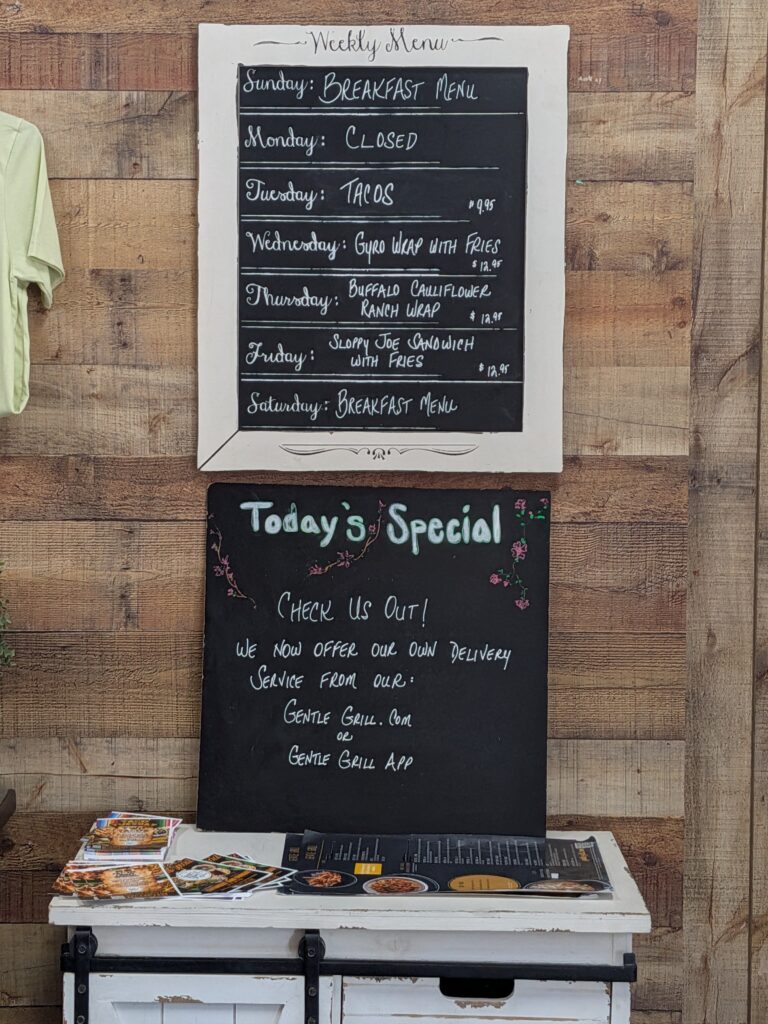 Weekly Menu
Sunday: BREAKFAST MENU
Monday: CLOSED
Tuesday: TACOS
$9.95
Wednesday: GYRO WRAP WITH FRIES
$12.95
Thursday: BUFFALO CAULIFLOWER
RANCH WRAP
$12.95
Friday: SLOPPY JOE SANDWICH
WITH FRIES
$12.95
Saturday: BREAKFAST MENU
Today's Special
CHECK US OUT!
WE NOW OFFER OUR OWN DELIVERY
SERVICE FROM OUR:
GENTLE GRILL.COM
OR
GENTLE GRILL APP